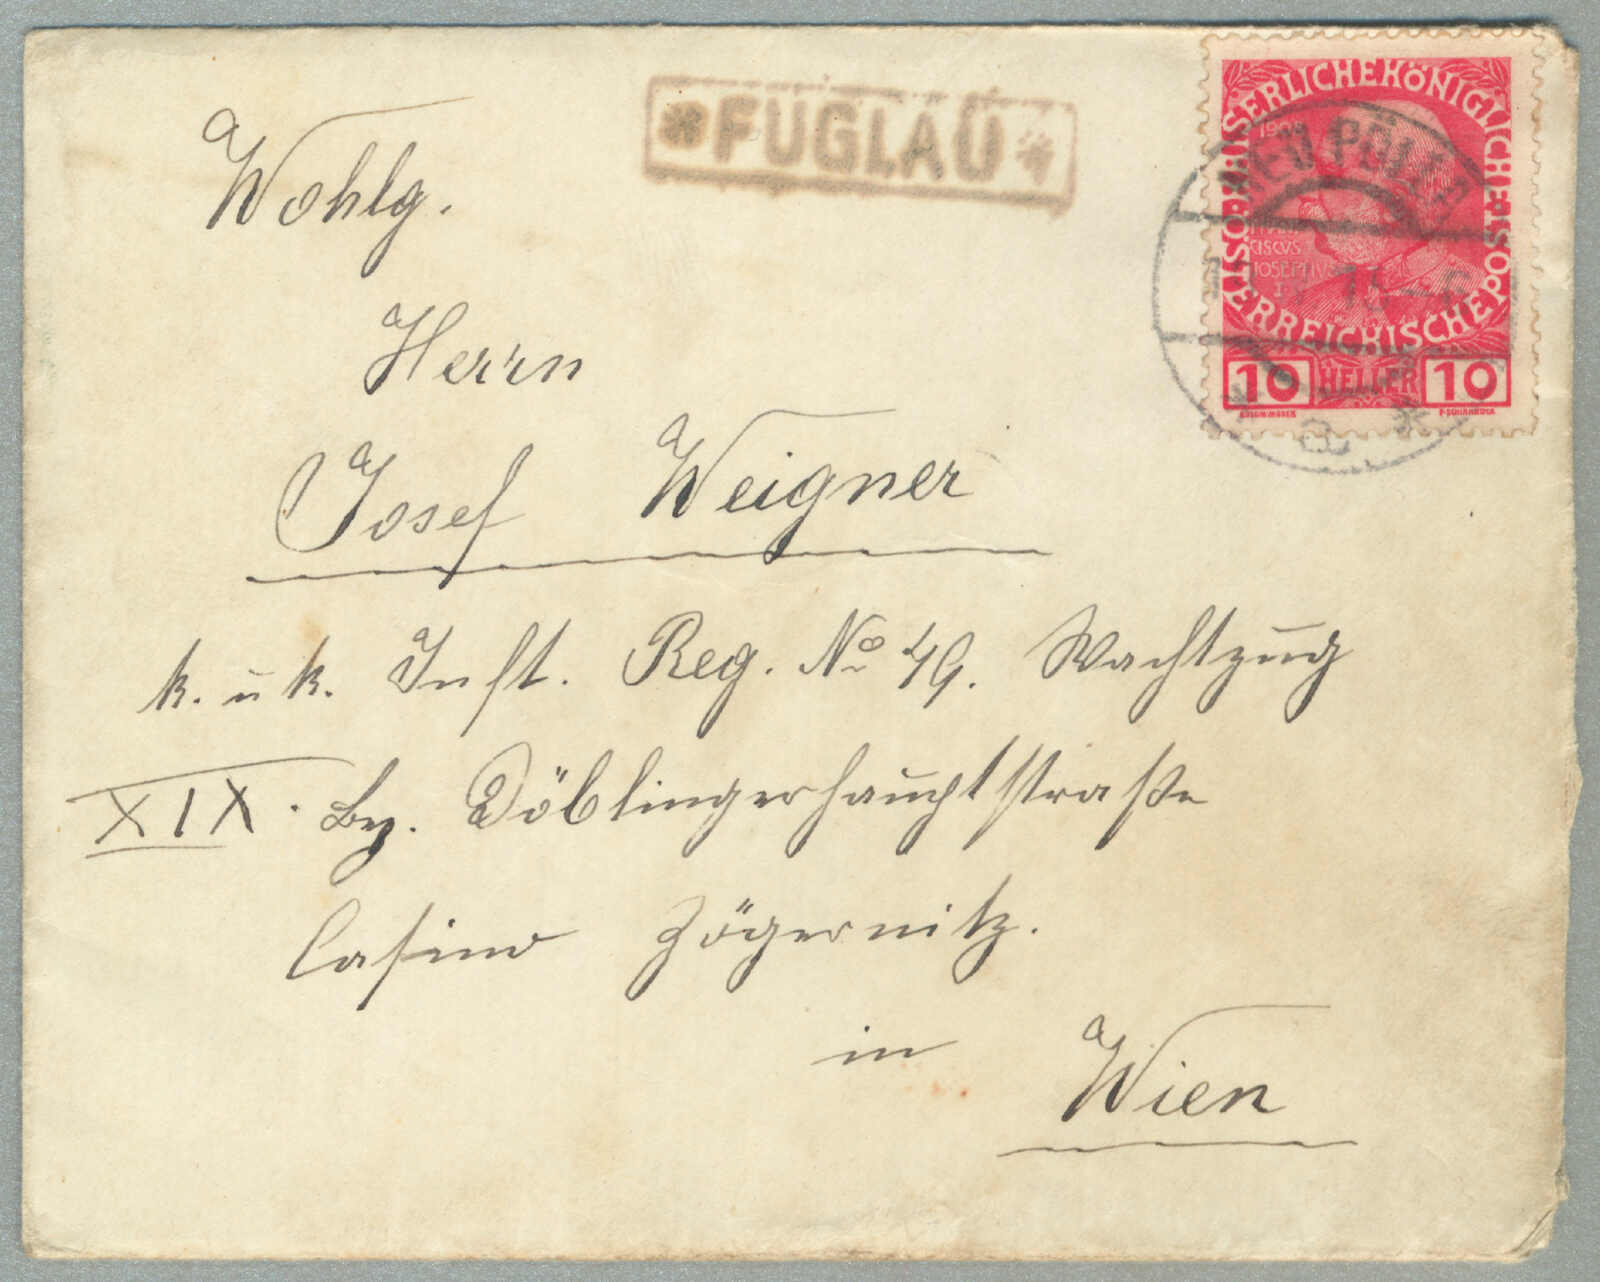 *FUGLAU*
KAISERLICHEKÖNIGLICHE
ÖSTERREICHISCHEPOST
1908
CISCUS
IOSEPHVS
I
10 HELLER 10
NEU PÖLLA
15-6
a
Wohlg.
Herrn
Josef Weigner
k. u. k. Inft. Reg. No 49. Wachtzug
XIX. Bz. Döblingerhauptstraße
Casino Zögernitz.
in Wien